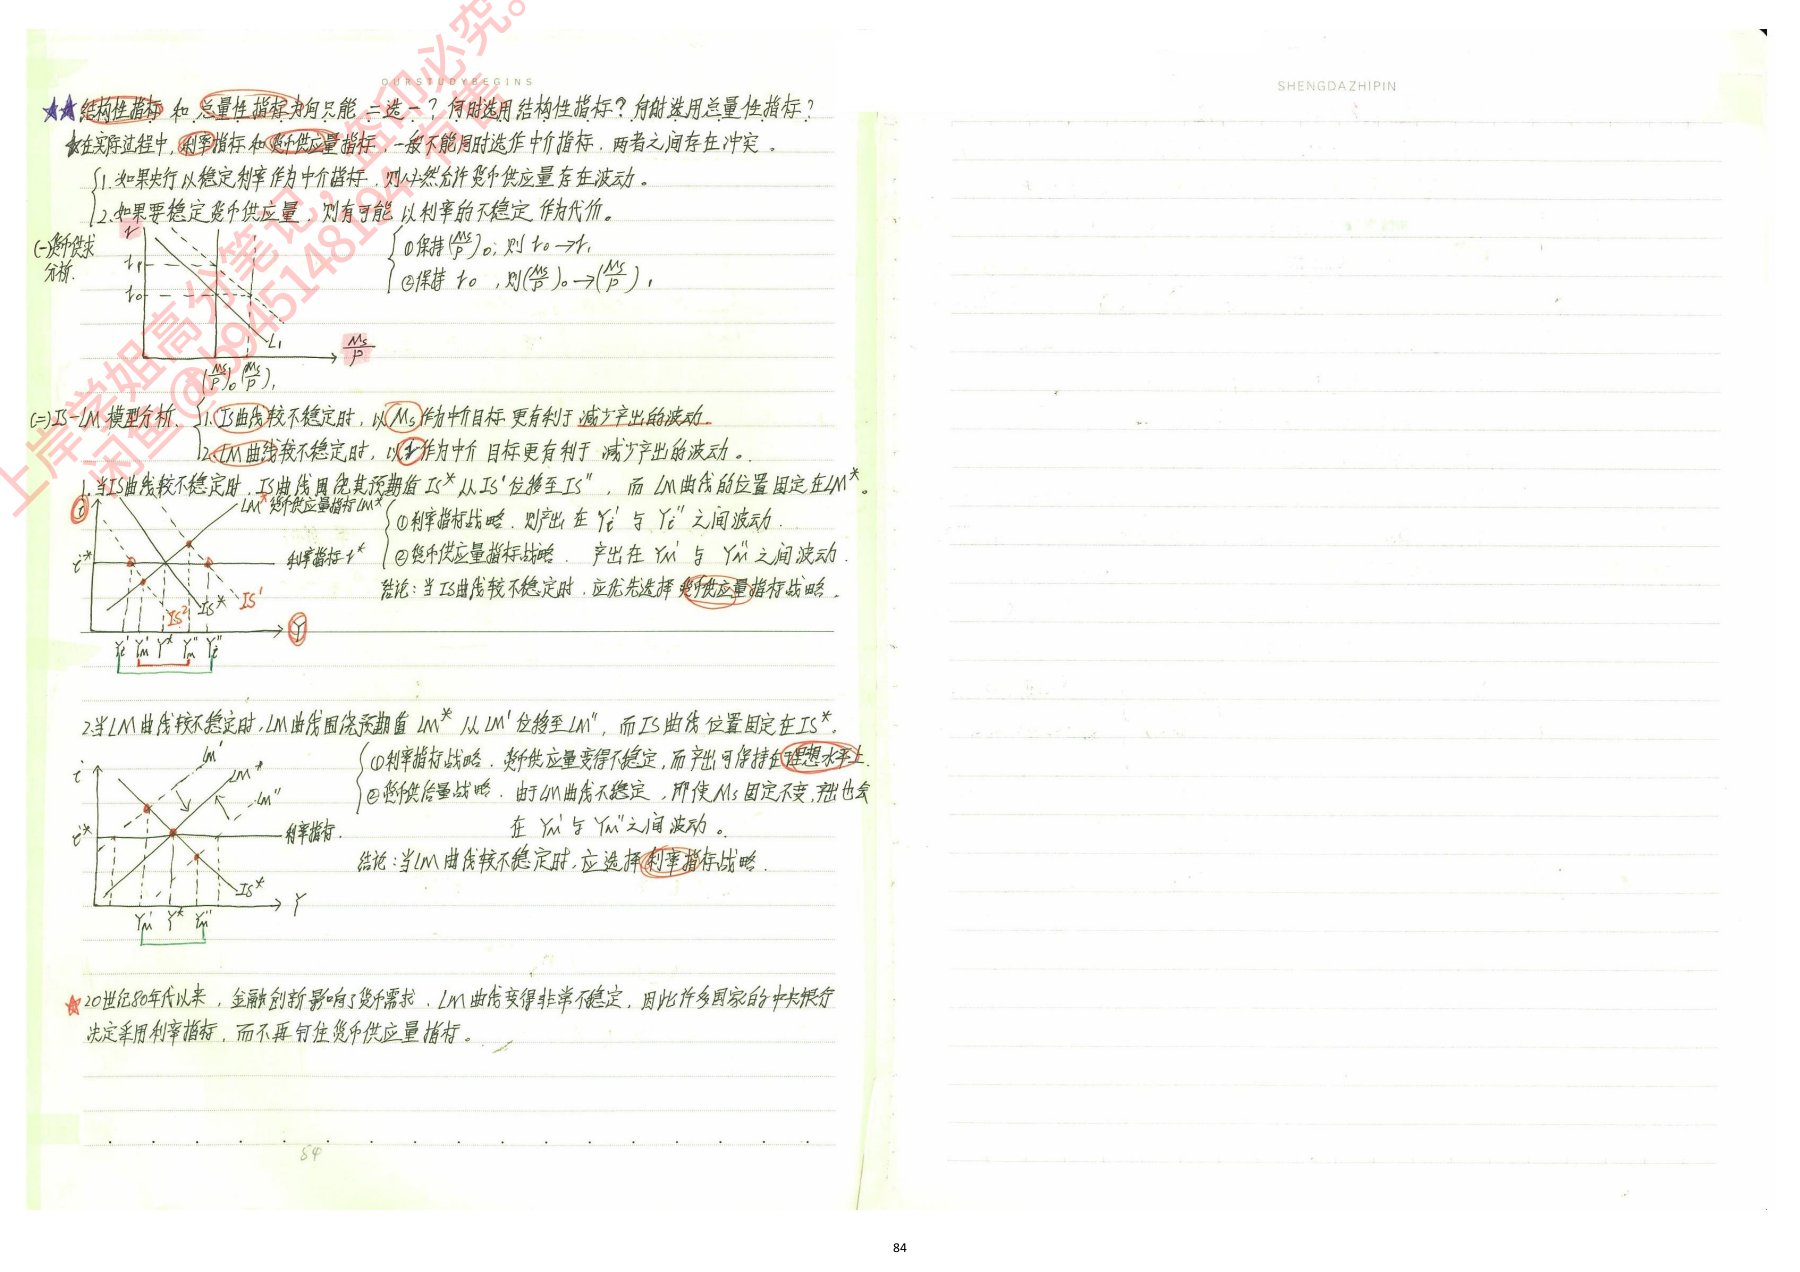 OURSTUDYBEGINS
SHENGDAZHIPIN
★★结构性指标 和 总量性指标为何只能 二选一? 何时选用结构性指标? 何时选用总量性指标?
★在实际过程中, 利率指标和货币供应量指标, 一般不能同时选作中介指标, 两者之间存在冲突。
1.如果央行以稳定利率作为中介指标, 则必然允许货币供应量存在波动。
2.如果要稳定货币供应量, 则有可能 以利率的不稳定 作为代价。
(一)货币供求
分析.
r
r₁
r₀
L₁
Ms/P
(Ms/P)₀ (Ms/P)₁
①保持(Ms/P)₀, 则 r₀→r₁
②保持 r₀ , 则(Ms/P)₀→(Ms/P)₁
(二)IS-LM 模型分析.
1. IS曲线较不稳定时, 以Ms作为中介目标 更有利于 减少产出的波动.
2. LM曲线较不稳定时, 以r作为中介 目标更有利于 减少产出的波动。
1.当IS曲线较不稳定时, IS曲线围绕其预期值IS*从IS'位移至IS", 而 LM曲线的位置固定在LM*。
LM* 货币供应量指标LM*
i*
利率指标r*
IS² IS* IS'
Y
Yi' Ym' Y* Ym" Yi"
①利率指标战略, 则产出 在 Yi' 与 Yi" 之间波动.
②货币供应量指标战略. 产出在 Ym' 与 Ym" 之间波动.
结论: 当IS曲线较不稳定时, 应优先选择 货币供应量指标战略.
2.当LM曲线较不稳定时, LM曲线围绕预期值 LM* 从LM'位移至LM", 而IS曲线 位置固定在IS*.
i
LM'
LM*
LM"
i*
利率指标.
IS*
Y
Ym' Y* Ym"
①利率指标战略. 货币供应量变得不稳定, 而产出可保持在理想水平上.
②货币供给量战略. 由于LM曲线不稳定, 即使Ms固定不变, 产出也会
在 Ym' 与 Ym"之间波动。
结论: 当LM曲线较不稳定时, 应选择利率指标战略.
★20世纪80年代以来, 金融创新影响了货币需求, LM曲线变得非常不稳定, 因此许多国家的中央银行
决定采用利率指标, 而不再钉住货币供应量指标。
84
上岸学姐高分笔记, 盗印必究。
84